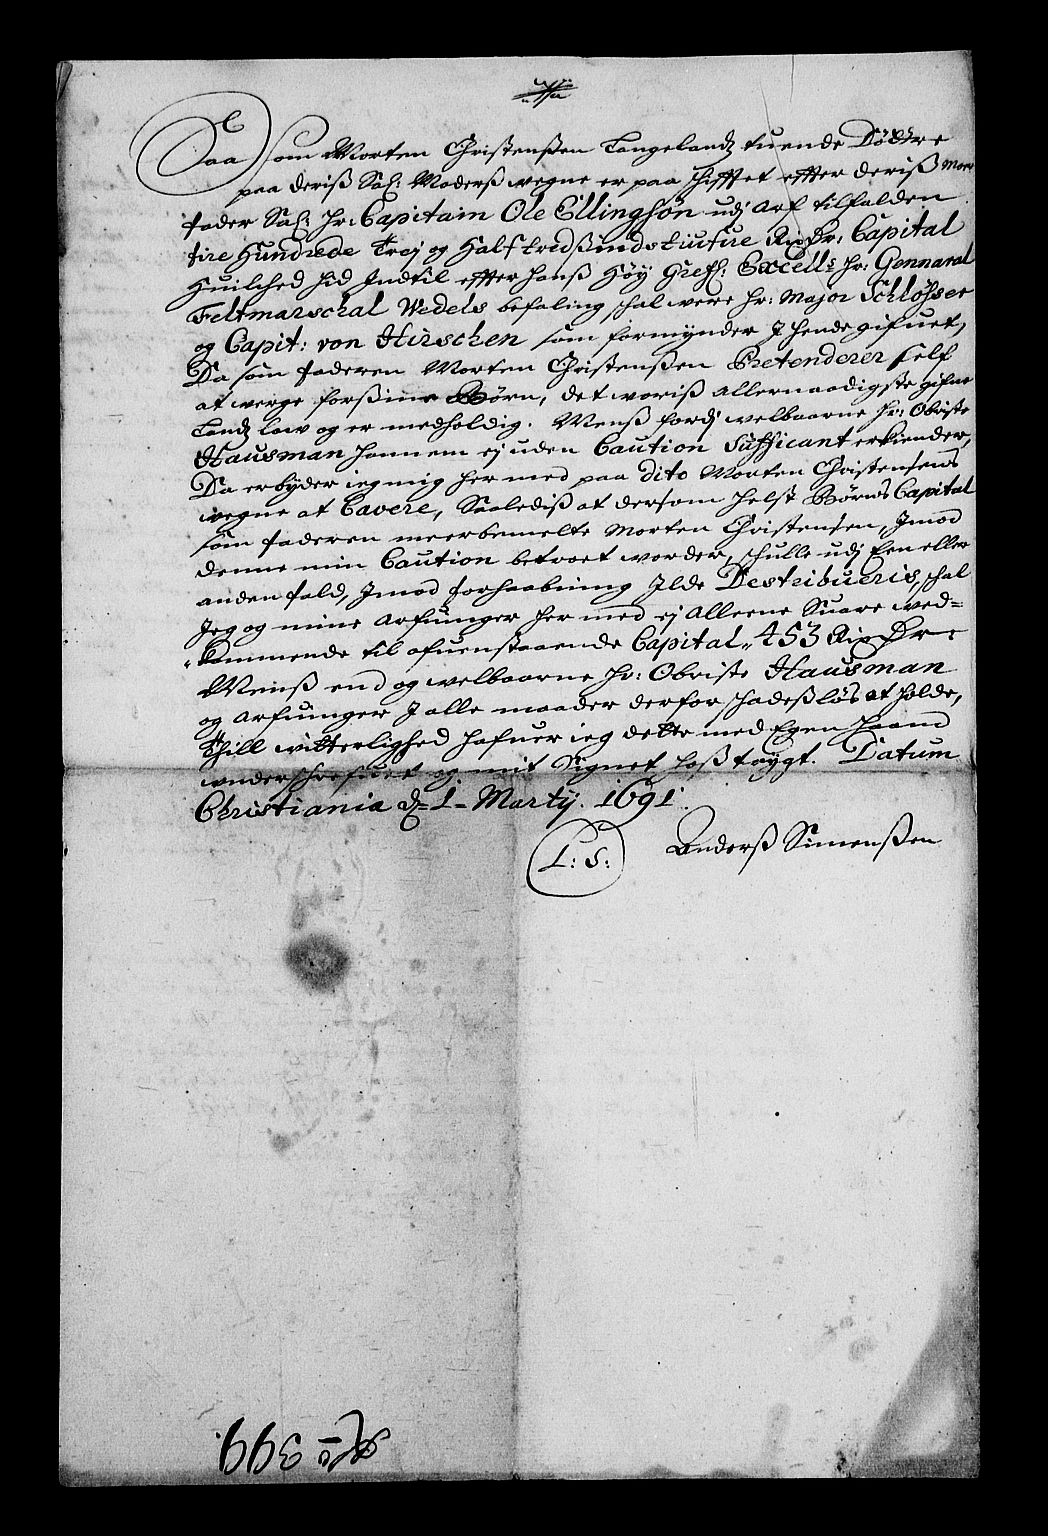 Saa som Morten Christenßen Langelandz tuende Døttre
paa deriß Sal: Moderß wegne er paa schifftet effter deriß Moer
fader Sal: Hr: Capitain Ole Ellingsøn udj Arf tilfalden
fire Hundrede Trej og Half tredßindstiufue Rixdr: Capital
Huilched hid Indtil effter hanß Høy Grefl: Excells Hr: Gennaral
Feltmarschal Wedels befaling schal were Hr: Major Schlößer
og Capit: von Hirschen som formynder J Hende gifuet,
Da som faderen Morten Christenßen Pretenderer self
at werge for sine Børn, det woriß allernaadigste gifne
Landz low og er medholdig. Menß fordj welbaarne Hr: Obriste
Hausman hannem ej uden Caution Sufficant erkiender,
Da erbyder ieg mig her med paa dito Morten Christensens
wegne at Cavere, Saalediß at dersom helst Børns Capital
som faderen meerbemelte Morten Christensen, Jmod
denne min Caution betroet worder, schulle udj Een eller
anden fald, Jmod forhaabning Jlde Destribueris, schal
Jeg og mine Arfuinger her med ej alleene Suare wed=
kommende til ofuenstaaende Capital 453 Rixdr:
Menß end og welbaarne Hr: Obriste Hausman
og Arfuinger J alle maader derfor schadeßløs at holde,
Till witterlighed hafuer ieg dette med Egen Haand
underschrefuet og mit Signet hoß tøygt. Datum
Christiania d= 1= Martij. 1691.
L: S: Anderß Simenßen
No 399.